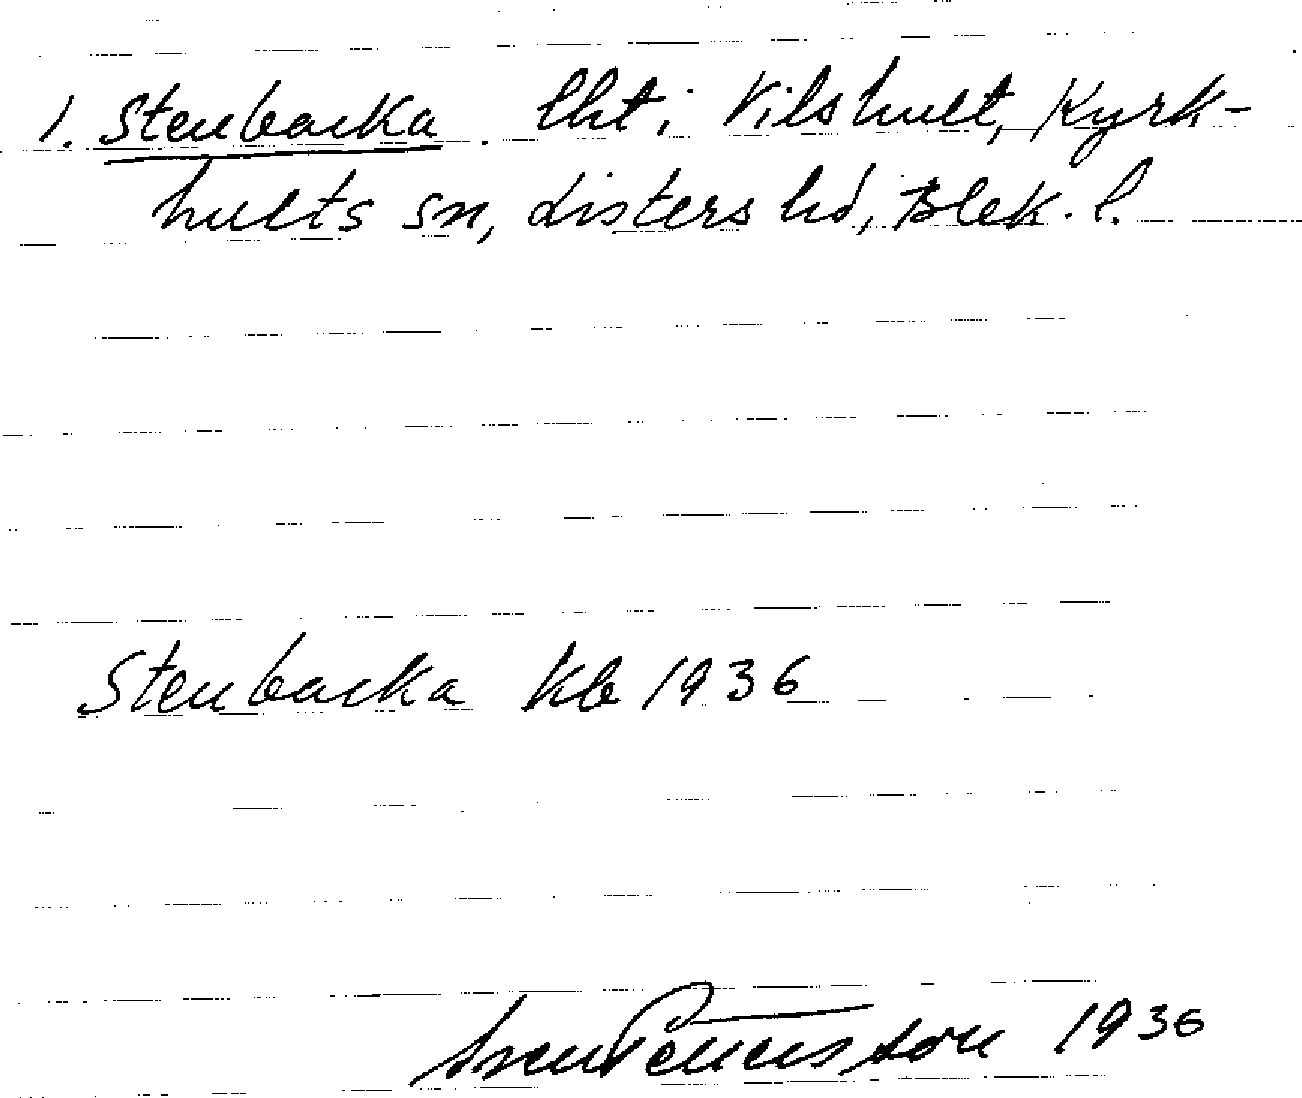 1. Stenbacka. lht i Vilshult, Kyrk-
hults sn, Listers hd, Blek. l.
Stenbacka Kb 1936
Sven Benson 1936